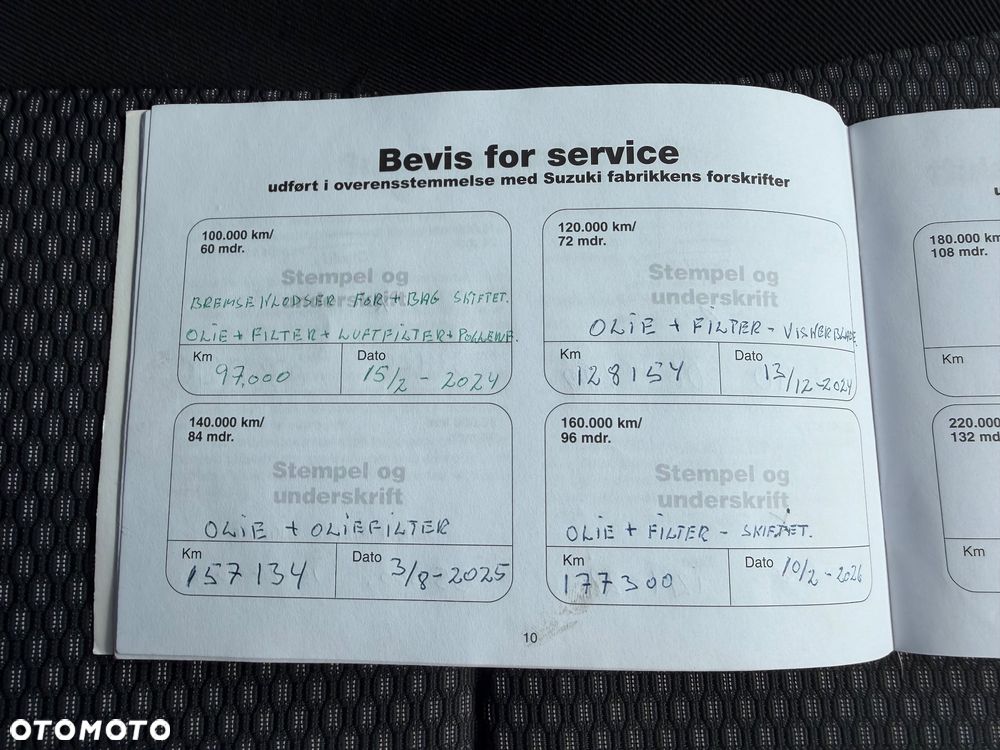 Bevis for service
udført i overensstemmelse med Suzuki fabrikkens forskrifter
100.000 km/
60 mdr.
Stempel og
underskrift
BREMSEKLODSER FOR + BAG SKIFTET.
OLIE + FILTER + LUFTFILTER + POLLENF.
Km
97,000
Dato
15/2 - 2024
120.000 km/
72 mdr.
Stempel og
underskrift
OLIE + FILTER - VISKERBLADE.
Km
128154
Dato
13/12-2024
140.000 km/
84 mdr.
Stempel og
underskrift
OLIE + OLIEFILTER
Km
157134
Dato
3/8-2025
160.000 km/
96 mdr.
Stempel og
underskrift
OLIE + FILTER - SKIFTET.
Km
177300
Dato
10/2-2026
10
180.000 km
108 mdr.
Km
220.000
132 md
Km
OTOMOTO